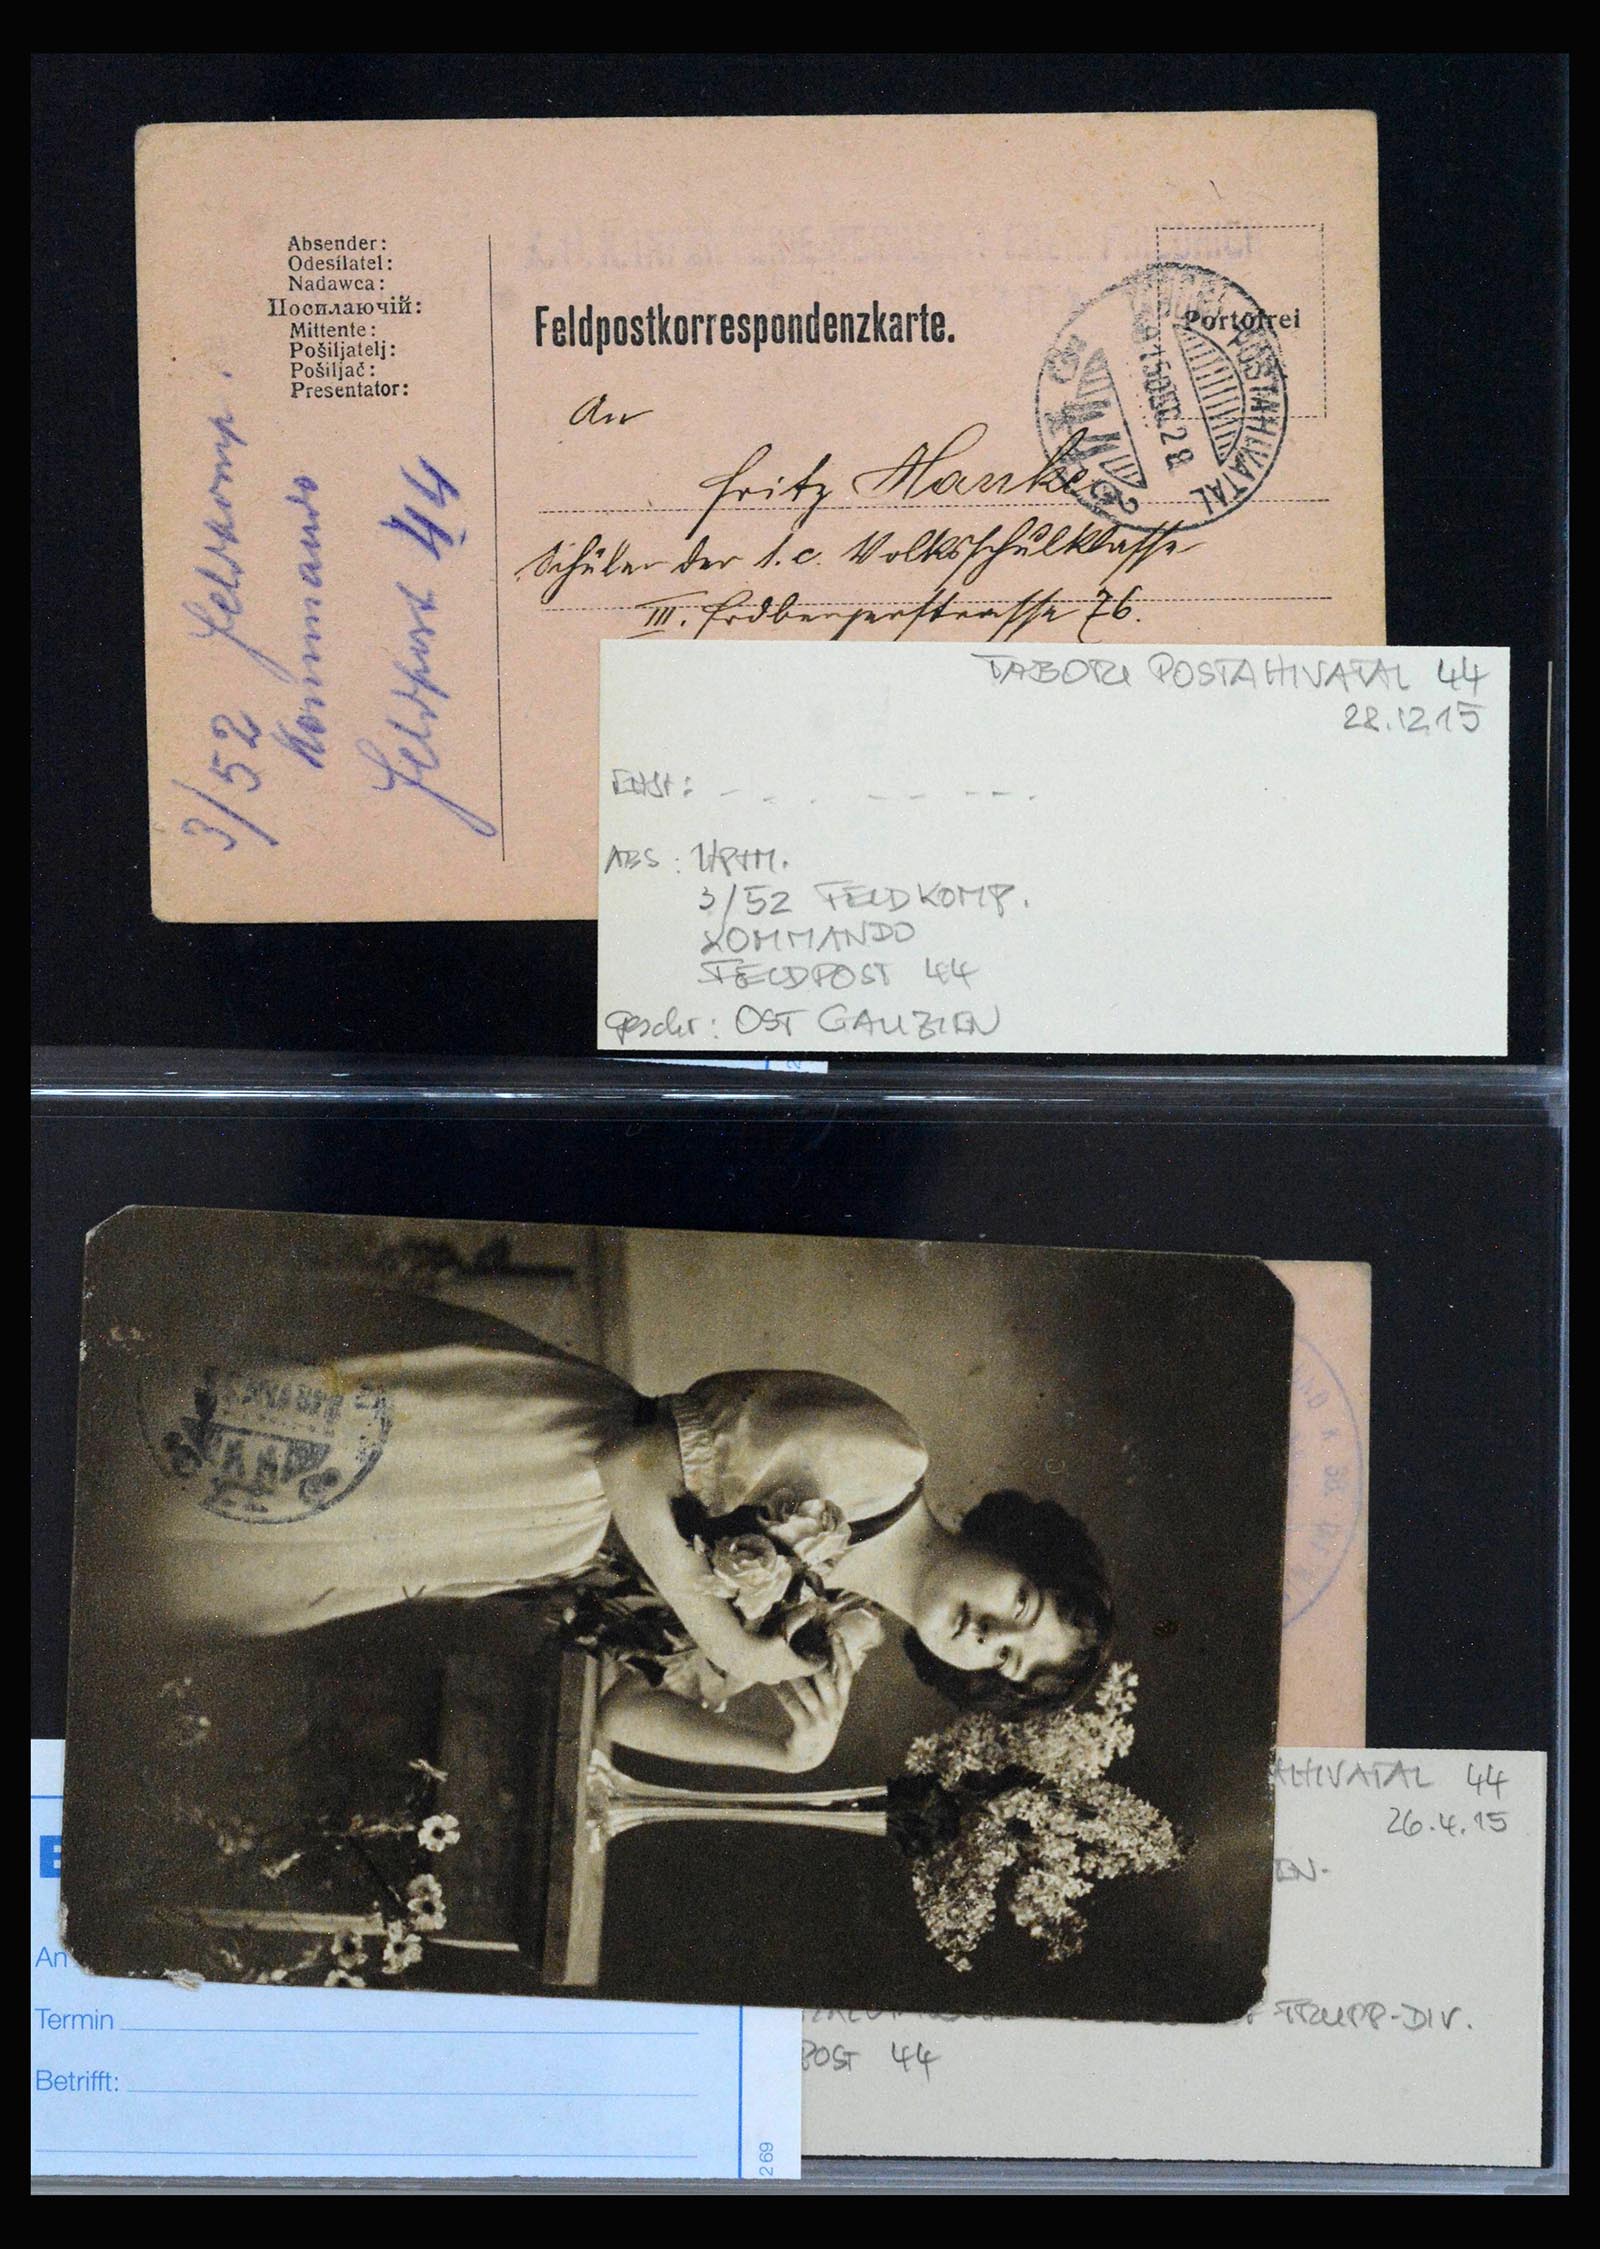 Absender:
Odesílatel:
Nadawca:
Посилаючій:
Mittente:
Pošiljatelj:
Pošiljač:
Presentator:
3/52 Feldkomp.
Kommando
Feldpost 44
Feldpostkorrespondenzkarte.
Portofrei
POSTAHIVATAL
915 DEC 28
44
An
Fritz Hanke
Schüler der 1.c. Volksschulklasse
III. Erdbergerstrasse 76.
TABORI POSTAHIVATAL 44
28.12.15
ABS: HPTM.
3/52 FELDKOMP.
KOMMANDO
FELDPOST 44
geschr: OST GALIZIEN
AHIVATAL 44
26.4.15
EN-
TRUPP-DIV.
POST 44
An
Termin
Betrifft:
269